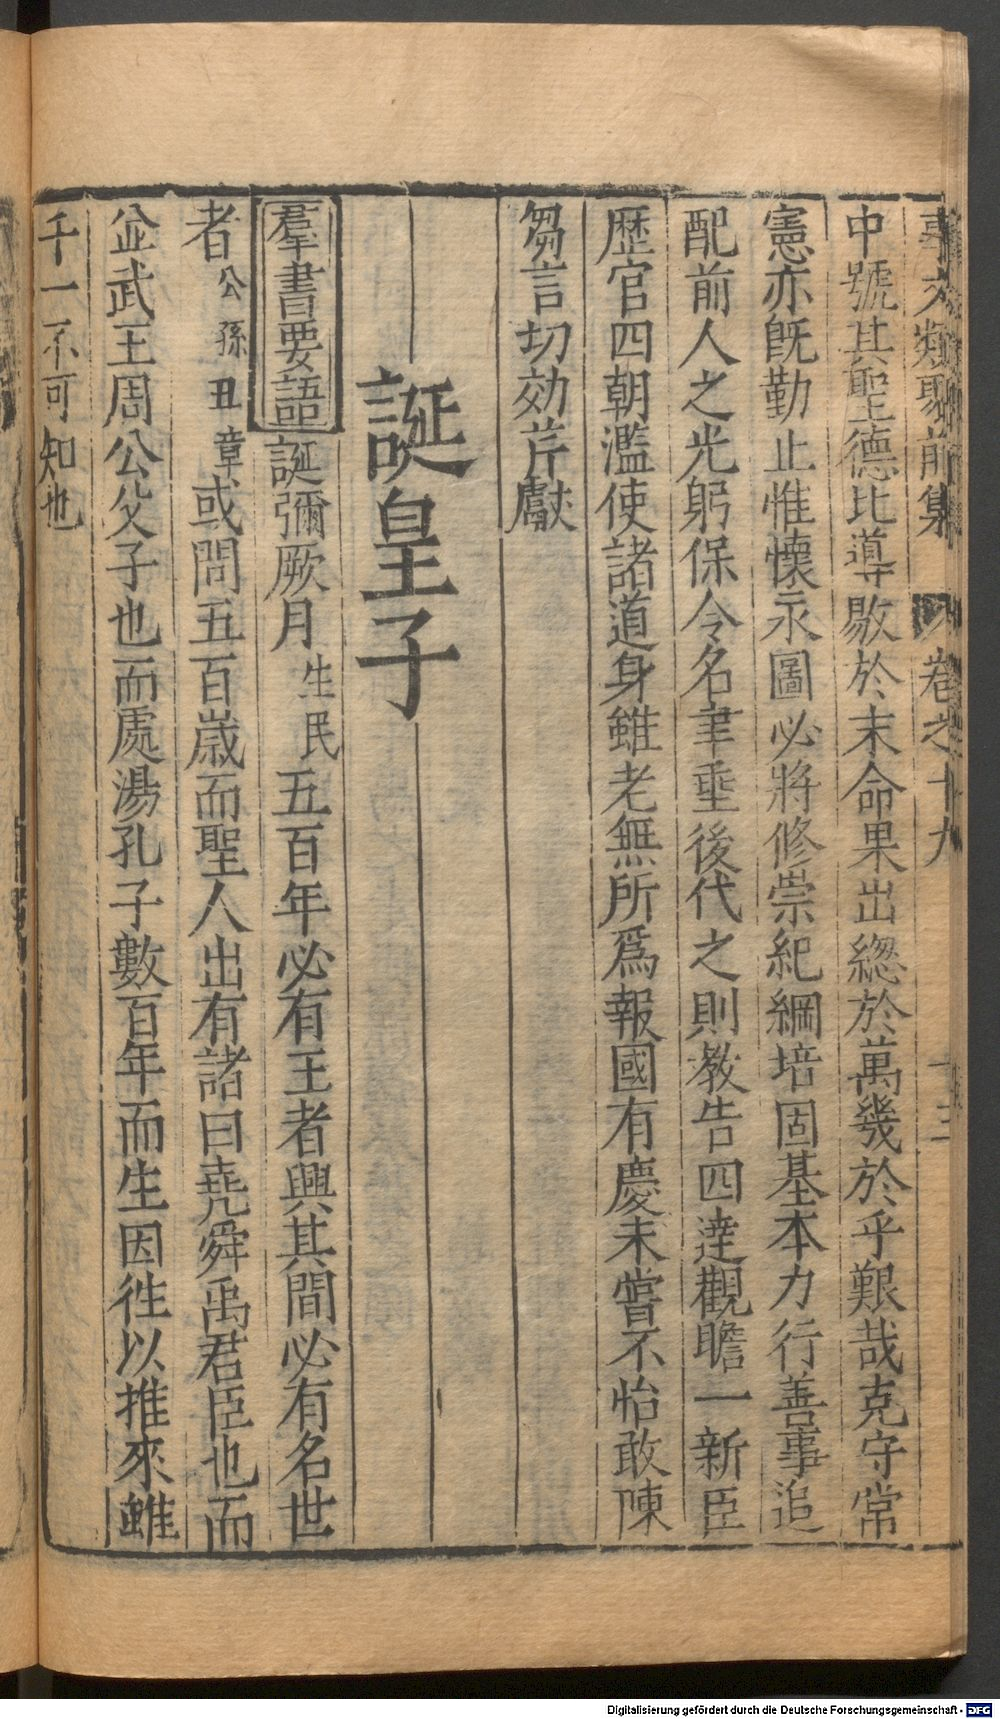 事文類聚前集 卷之十九 十三
中號其聖德比導歇於末命果出總於萬幾於乎艱哉克守常
憲亦旣勤止惟懷永圖必將修崇紀綱培固基本力行善事追
配前人之光躬保令名聿垂後代之則敎告四逹觀瞻一新臣
歷官四朝濫使諸道身雖老無所爲報國有慶未嘗不怡敢陳
芻言切効芹獻
誕皇子
羣書要語誕彌厥月生民五百年必有王者興其間必有名世
者公孫丑章或問五百歲而聖人出有諸曰堯舜禹君臣也而
並武王周公父子也而處湯孔子數百年而生因徃以推來雖
千一不可知也
Digitalisierung gefördert durch die Deutsche Forschungsgemeinschaft - DFG